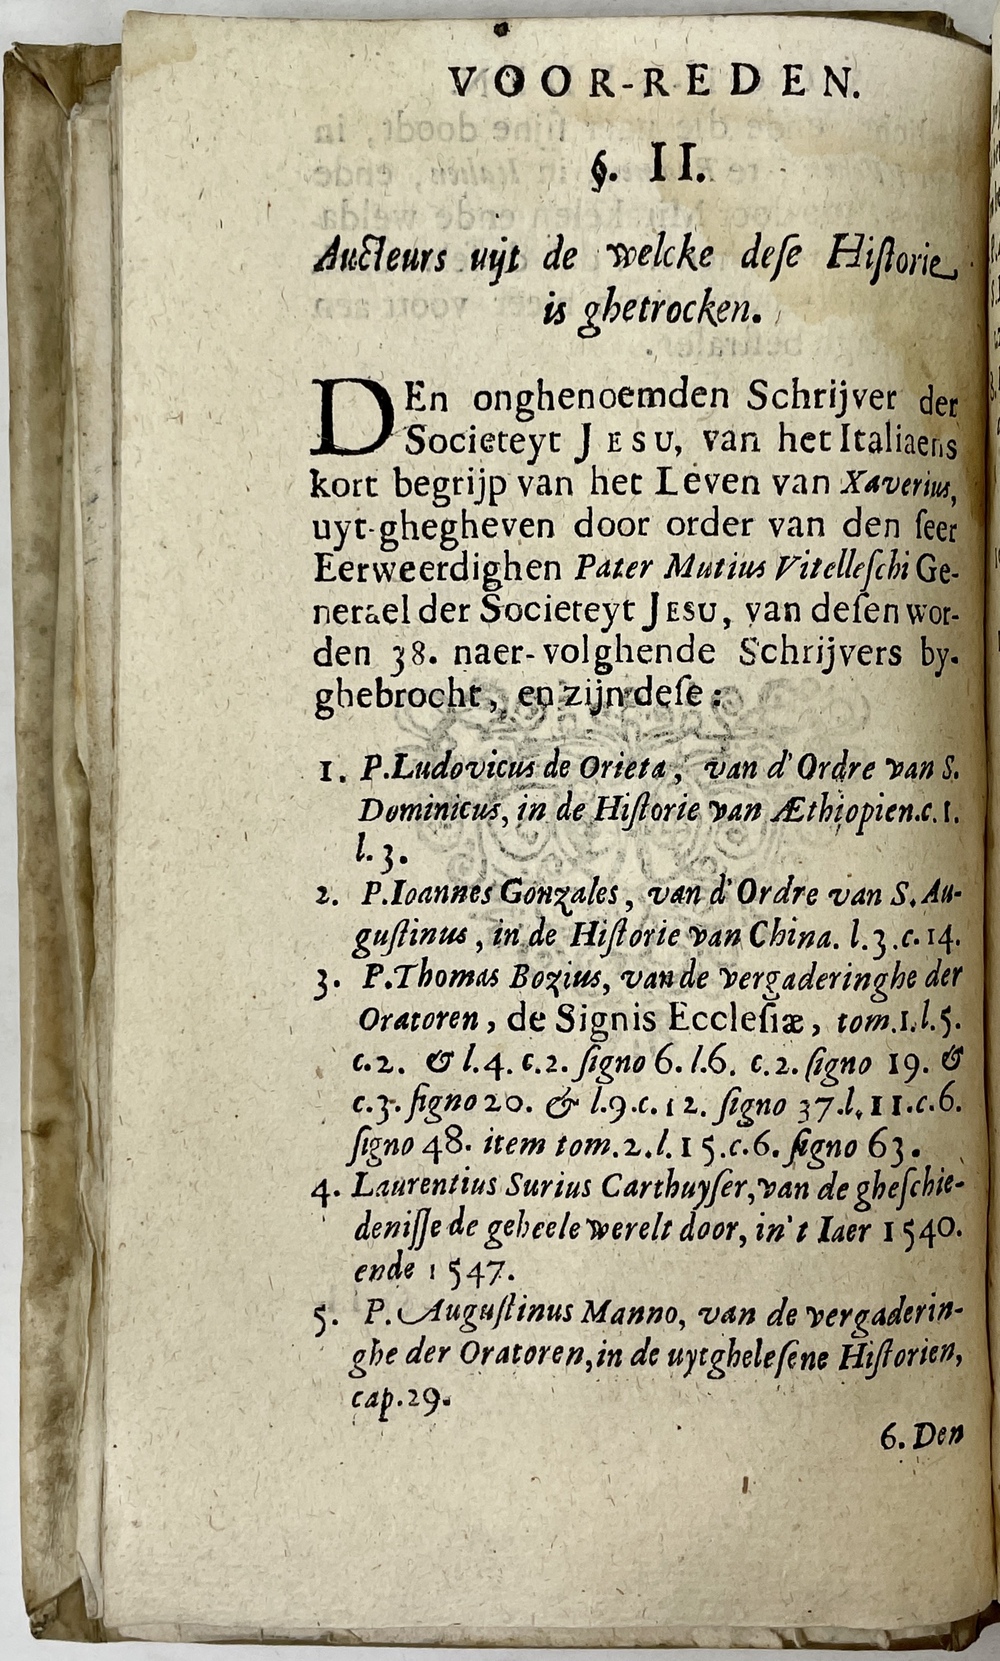 VOOR-REDEN.
§. II.
Aucteurs uijt de welcke dese Historie
is ghetrocken.
DEn onghenoemden Schrijver der
Societeyt JESU, van het Italiaens
kort begrijp van het Leven van Xaverius,
uyt-ghegheven door order van den seer
Eerweerdighen Pater Mutius Vitelleschi Ge-
nerael der Societeyt JESU, van desen wor-
den 38. naer-volghende Schrijvers by-
ghebrocht, en zijn dese:
1. P. Ludovicus de Orieta, van d'Ordre van S.
Dominicus, in de Historie van Æthiopien. c. 1.
l. 3.
2. P. Ioannes Gonzales, van d'Ordre van S. Au-
gustinus, in de Historie van China. l. 3. c. 14.
3. P. Thomas Bozius, van de vergaderinghe der
Oratoren, de Signis Ecclesiæ, tom. 1. l. 5.
c. 2. & l. 4. c. 2. signo 6. l. 6. c. 2. signo 19. &
c. 3. signo 20. & l. 9. c. 12. signo 37. l. 11. c. 6.
signo 48. item tom. 2. l. 15. c. 6. signo 63.
4. Laurentius Surius Carthuyser, van de gheschie-
denisse de geheele werelt door, in't Iaer 1540.
ende 1547.
5. P. Augustinus Manno, van de vergaderin-
ghe der Oratoren, in de uytghelesene Historien,
cap. 29.
6. Den